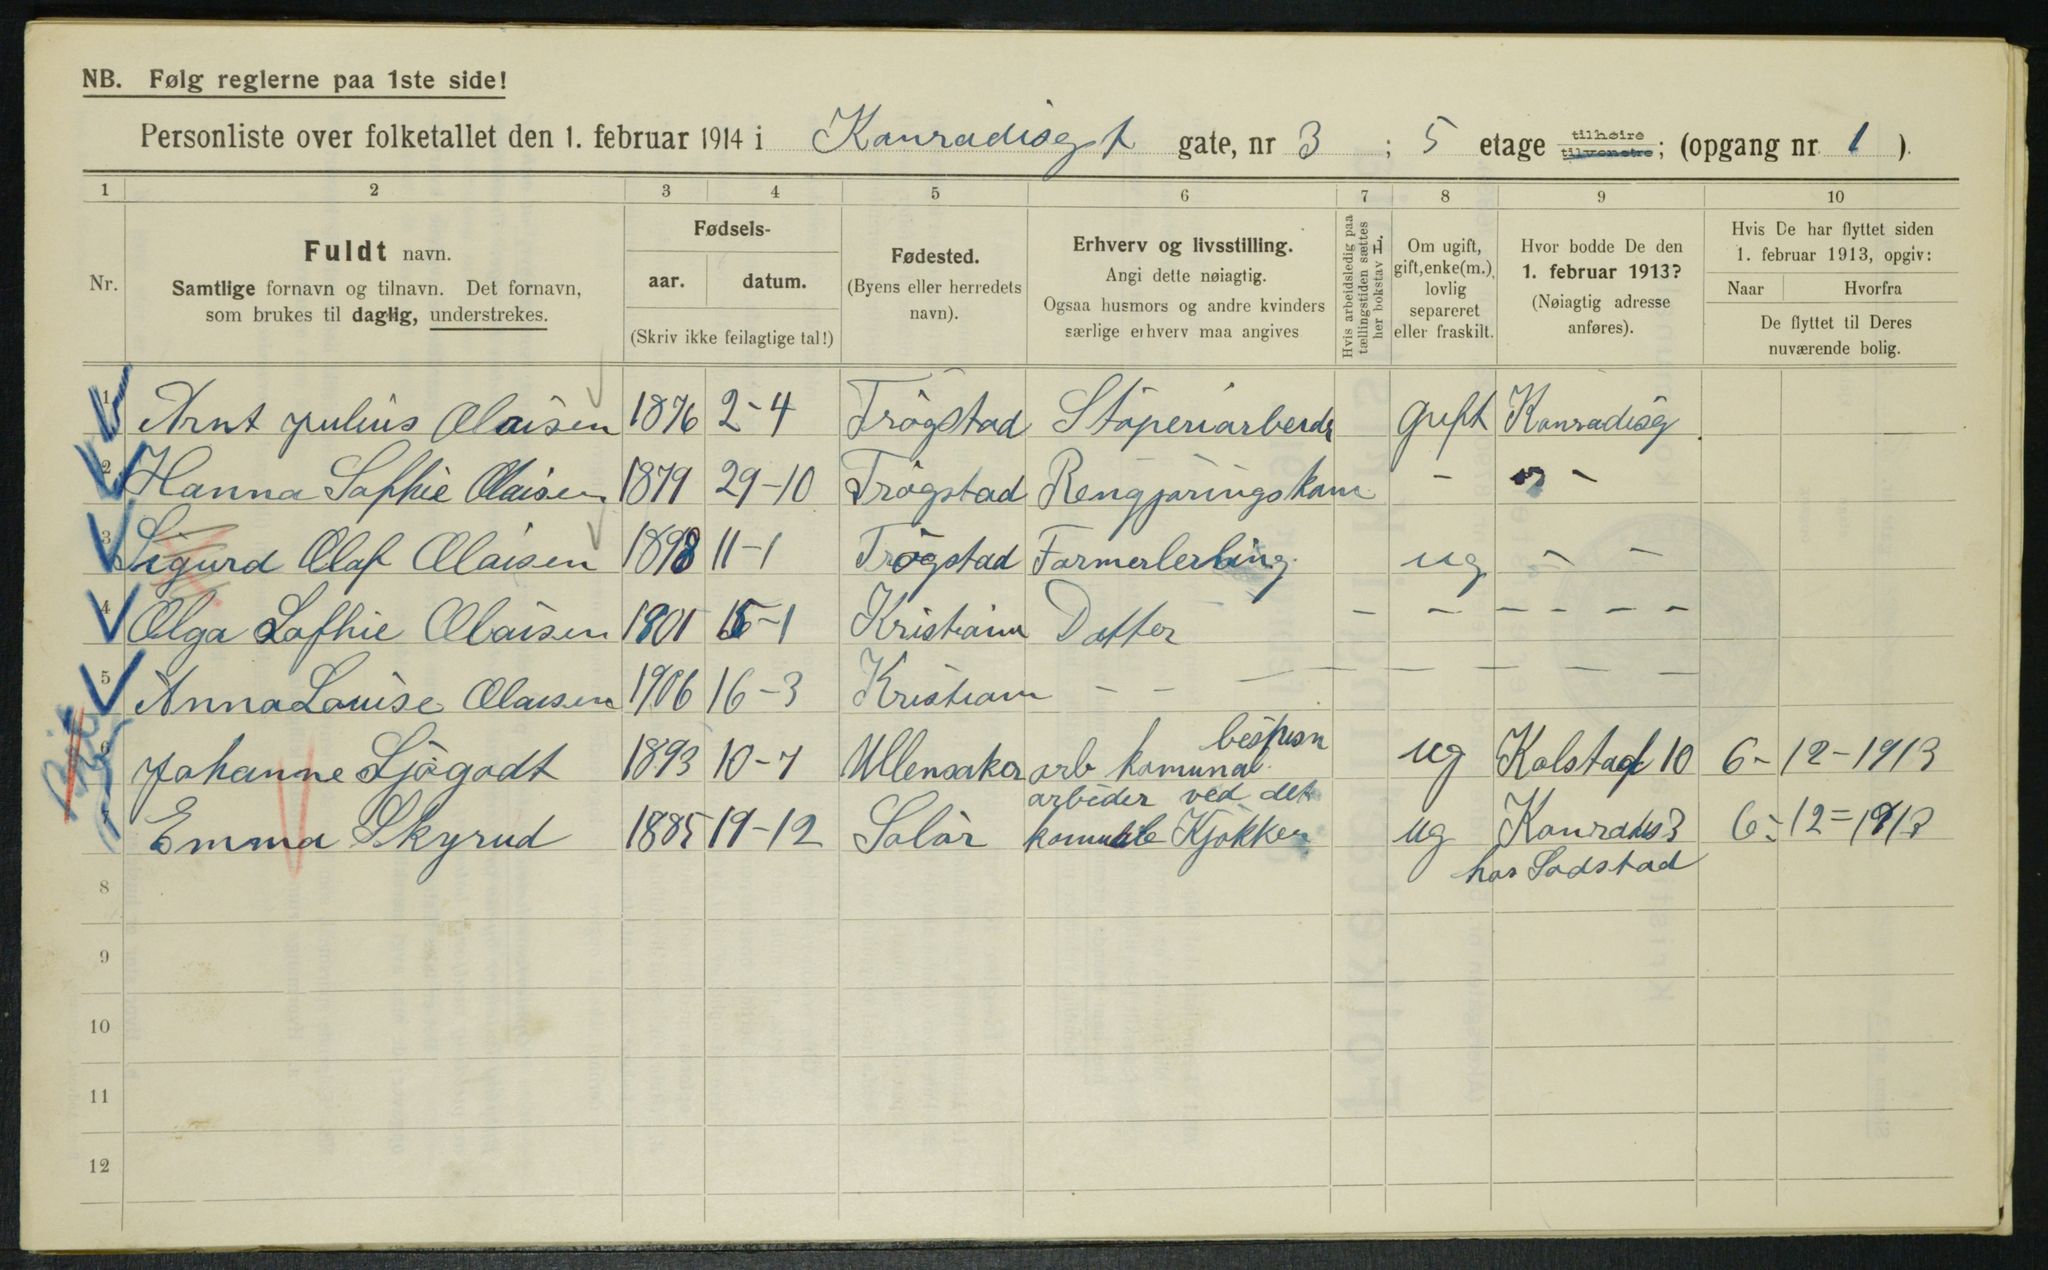 NB. Følg reglerne paa 1ste side!
Personliste over folketallet den 1. februar 1914 i Konradisgt gate, nr 3 ; 5 etage tilhøire tilvenstre; (opgang nr 1 ).
1 2 3 4 5 6 7 8 9 10
Nr.
Fuldt navn.
Samtlige fornavn og tilnavn. Det fornavn,
som brukes til daglig, understrekes.
Fødsels-
aar. datum.
(Skriv ikke feilagtige tal!)
Fødested.
(Byens eller herredets
navn).
Erhverv og livsstilling.
Angi dette nøiagtig.
Ogsaa husmors og andre kvinders
særlige erhverv maa angives
Hvis arbeidsledig paa
tællingstiden sættes
her bokstav H.
Om ugift,
gift, enke(m.),
lovlig
separeret
eller fraskilt.
Hvor bodde De den
1. februar 1913?
(Nøiagtig adresse
anføres).
Hvis De har flyttet siden
1. februar 1913, opgiv:
Naar Hvorfra
De flyttet til Deres
nuværende bolig.
1 Arnt Julius Olaisen 1876 2-4 Trögstad Støperiarbeidr gift Konradisg
2 Hanna Sofhie Olaisen 1879 29-10 Trögstad Rengjøringskone - -
3 Sigurd Olaf Olaisen 1898 11-1 Trögstad Formerlerling ug - -
4 Olga Sofhie Olaisen 1901 15-1 Kristiania Datter - - - - - -
5 Anna Louise Olaisen 1906 16-3 Kristiania - - - - - - - - -
bespisn
6 Johanne Sjögodt 1893 10-7 Ullensaker arb komunal ug Kolstadg 10 6-12-1913
arbeder ved det
7 Emma Skyrud 1885 19-12 Solör komunale Kjøkken ug Konradis 3 6-12=1913
hos Sodstad
8
9
10
11
12